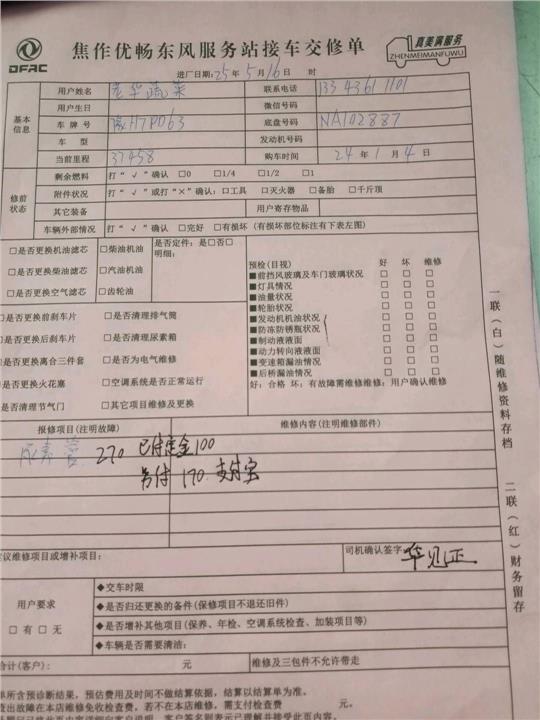 DFAC
焦作优畅东风服务站接车交修单
真美满服务
ZHENMEIMANFUWU
进厂日期:25年5月16日 时
基本信息
用户姓名 老华蔬菜 联系电话 133 4361 1101
用户生日 微信号码
车牌号 豫H7P063 底盘号码 NA102887
车型 发动机号码
当前里程 37458 购车时间 24年1月4日
修前状态
剩余燃料 打“√”确认 □0 □1/4 □1/2 □1
附件状况 打“√”或打“×”确认:□工具 □灭火器 □备胎 □千斤顶
其它装备 用户寄存物品
车辆外部情况 打“√”确认 □完好 □有损坏 (有损坏部位标注有下表左图)
□是否更换机油滤芯 □柴油机油 是否定件:是□否□
明细:
□是否更换柴油滤芯 □汽油机油
□是否更换空气滤芯 □齿轮油
□是否更换前刹车片 □是否清理排气筒
□是否更换后刹车片 □是否清理尿素箱
□是否更换离合三件套 □是否为电气维修
□是否更换火花塞 □空调系统是否正常运行
□是否清理节气门 □其它项目维修及更换
预检(目视) 好 坏 维修
■前挡风玻璃及车门玻璃状况 □ □ □
■灯具情况 □ □ □
■油量状况 □ □ □
■轮胎状况 □ □ □
■发动机机油状况 □ □ □
■防冻防锈瓶状况 □ □ □
■制动液液面 □ □ □
■动力转向液液面 □ □ □
■变速箱漏油情况 □ □ □
■后桥漏油情况 □ □ □
好:合格 坏:有故障需维修维修:用户确认维修
报修项目(注明故障) 维修内容(注明维修部件)
尿素管 270 已付定金100
另付 170 支付宝
建议维修项目或增补项目: 司机确认签字: 华见正
用户要求
□有 □无
◆交车时限
◆是否归还更换的备件(保修项目不退还旧件)
◆是否增补其他项目(保养、年检、空调系统检查、加装项目等)
◆车辆是否需要清油:
合计(客户): 元 维修及三包件不允许带走
单所含预诊断结果,预估费用及时间不做结算依据,结算以结算单为准。
查出故障在本店维修免收检查费,若不在本店维修,需支付检查费 元。
一联(白)随维修资料存档
二联(红)财务留存